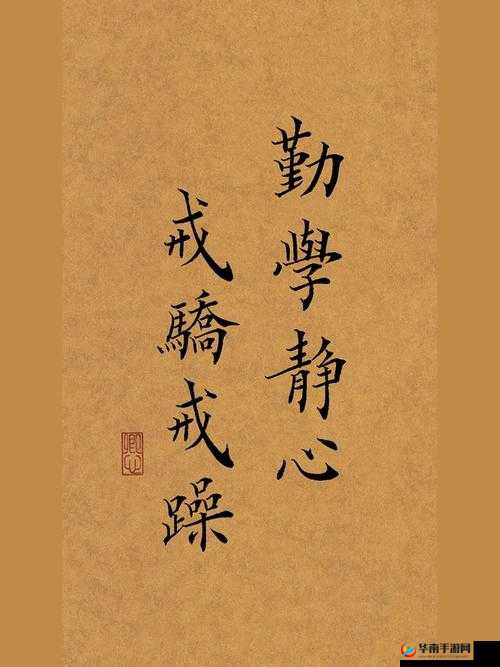 勤學靜心
戒驕戒躁
华南手游网